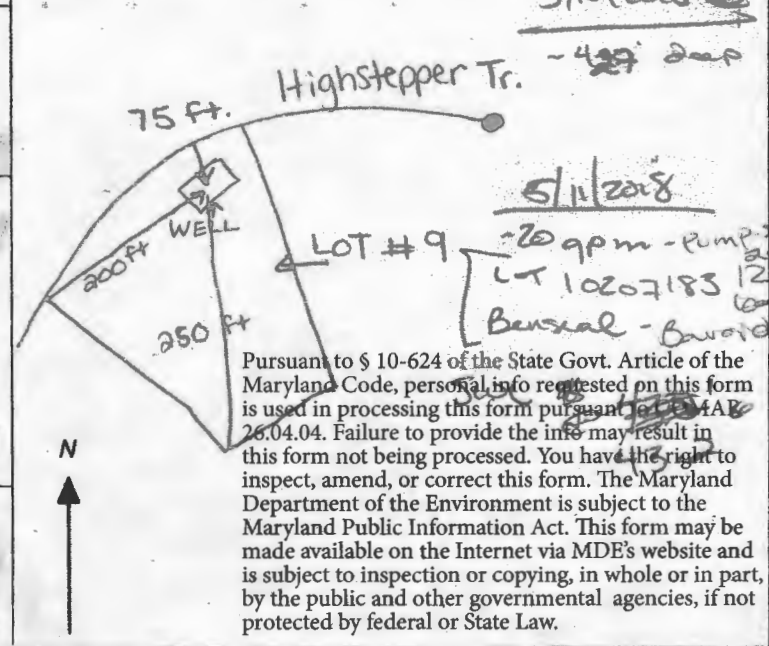 ~427 deep
Highstepper Tr.
75 ft.
5/11/2018
WELL
LOT # 9
~20 gpm - Pump
200 ft
LOT 10207183
250 ft
Benseal - Baroid
Pursuant to § 10-624 of the State Govt. Article of the
Maryland Code, personal info requested on this form
is used in processing this form pursuant to COMAR
26.04.04. Failure to provide the info may result in
this form not being processed. You have the right to
inspect, amend, or correct this form. The Maryland
Department of the Environment is subject to the
Maryland Public Information Act. This form may be
made available on the Internet via MDE's website and
is subject to inspection or copying, in whole or in part,
by the public and other governmental agencies, if not
protected by federal or State Law.
N